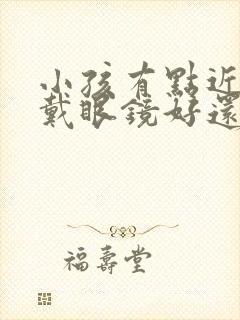 小孩有點近
戴眼鏡好還
福壽堂